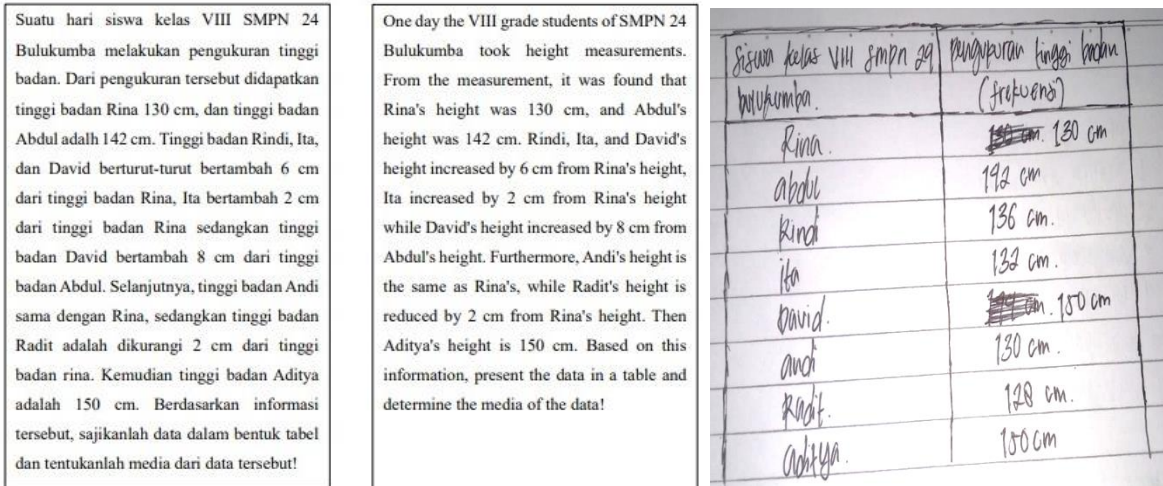 Suatu hari siswa kelas VIII SMPN 24
Bulukumba melakukan pengukuran tinggi
badan. Dari pengukuran tersebut didapatkan
tinggi badan Rina 130 cm, dan tinggi badan
Abdul adalh 142 cm. Tinggi badan Rindi, Ita,
dan David berturut-turut bertambah 6 cm
dari tinggi badan Rina, Ita bertambah 2 cm
dari tinggi badan Rina sedangkan tinggi
badan David bertambah 8 cm dari tinggi
badan Abdul. Selanjutnya, tinggi badan Andi
sama dengan Rina, sedangkan tinggi badan
Radit adalah dikurangi 2 cm dari tinggi
badan rina. Kemudian tinggi badan Aditya
adalah 150 cm. Berdasarkan informasi
tersebut, sajikanlah data dalam bentuk tabel
dan tentukanlah media dari data tersebut!
One day the VIII grade students of SMPN 24
Bulukumba took height measurements.
From the measurement, it was found that
Rina's height was 130 cm, and Abdul's
height was 142 cm. Rindi, Ita, and David's
height increased by 6 cm from Rina's height,
Ita increased by 2 cm from Rina's height
while David's height increased by 8 cm from
Abdul's height. Furthermore, Andi's height is
the same as Rina's, while Radit's height is
reduced by 2 cm from Rina's height. Then
Aditya's height is 150 cm. Based on this
information, present the data in a table and
determine the media of the data!
Siswa kelas VIII smpn 24 pengukuran tinggi badan
bulukumba. (frekuensi)
Rina. 130 cm
abdul 142 cm
Rindi 136 cm.
ita 132 cm.
David. cm. 150 cm
andi 130 cm.
Radit. 128 cm.
aditya. 150 cm